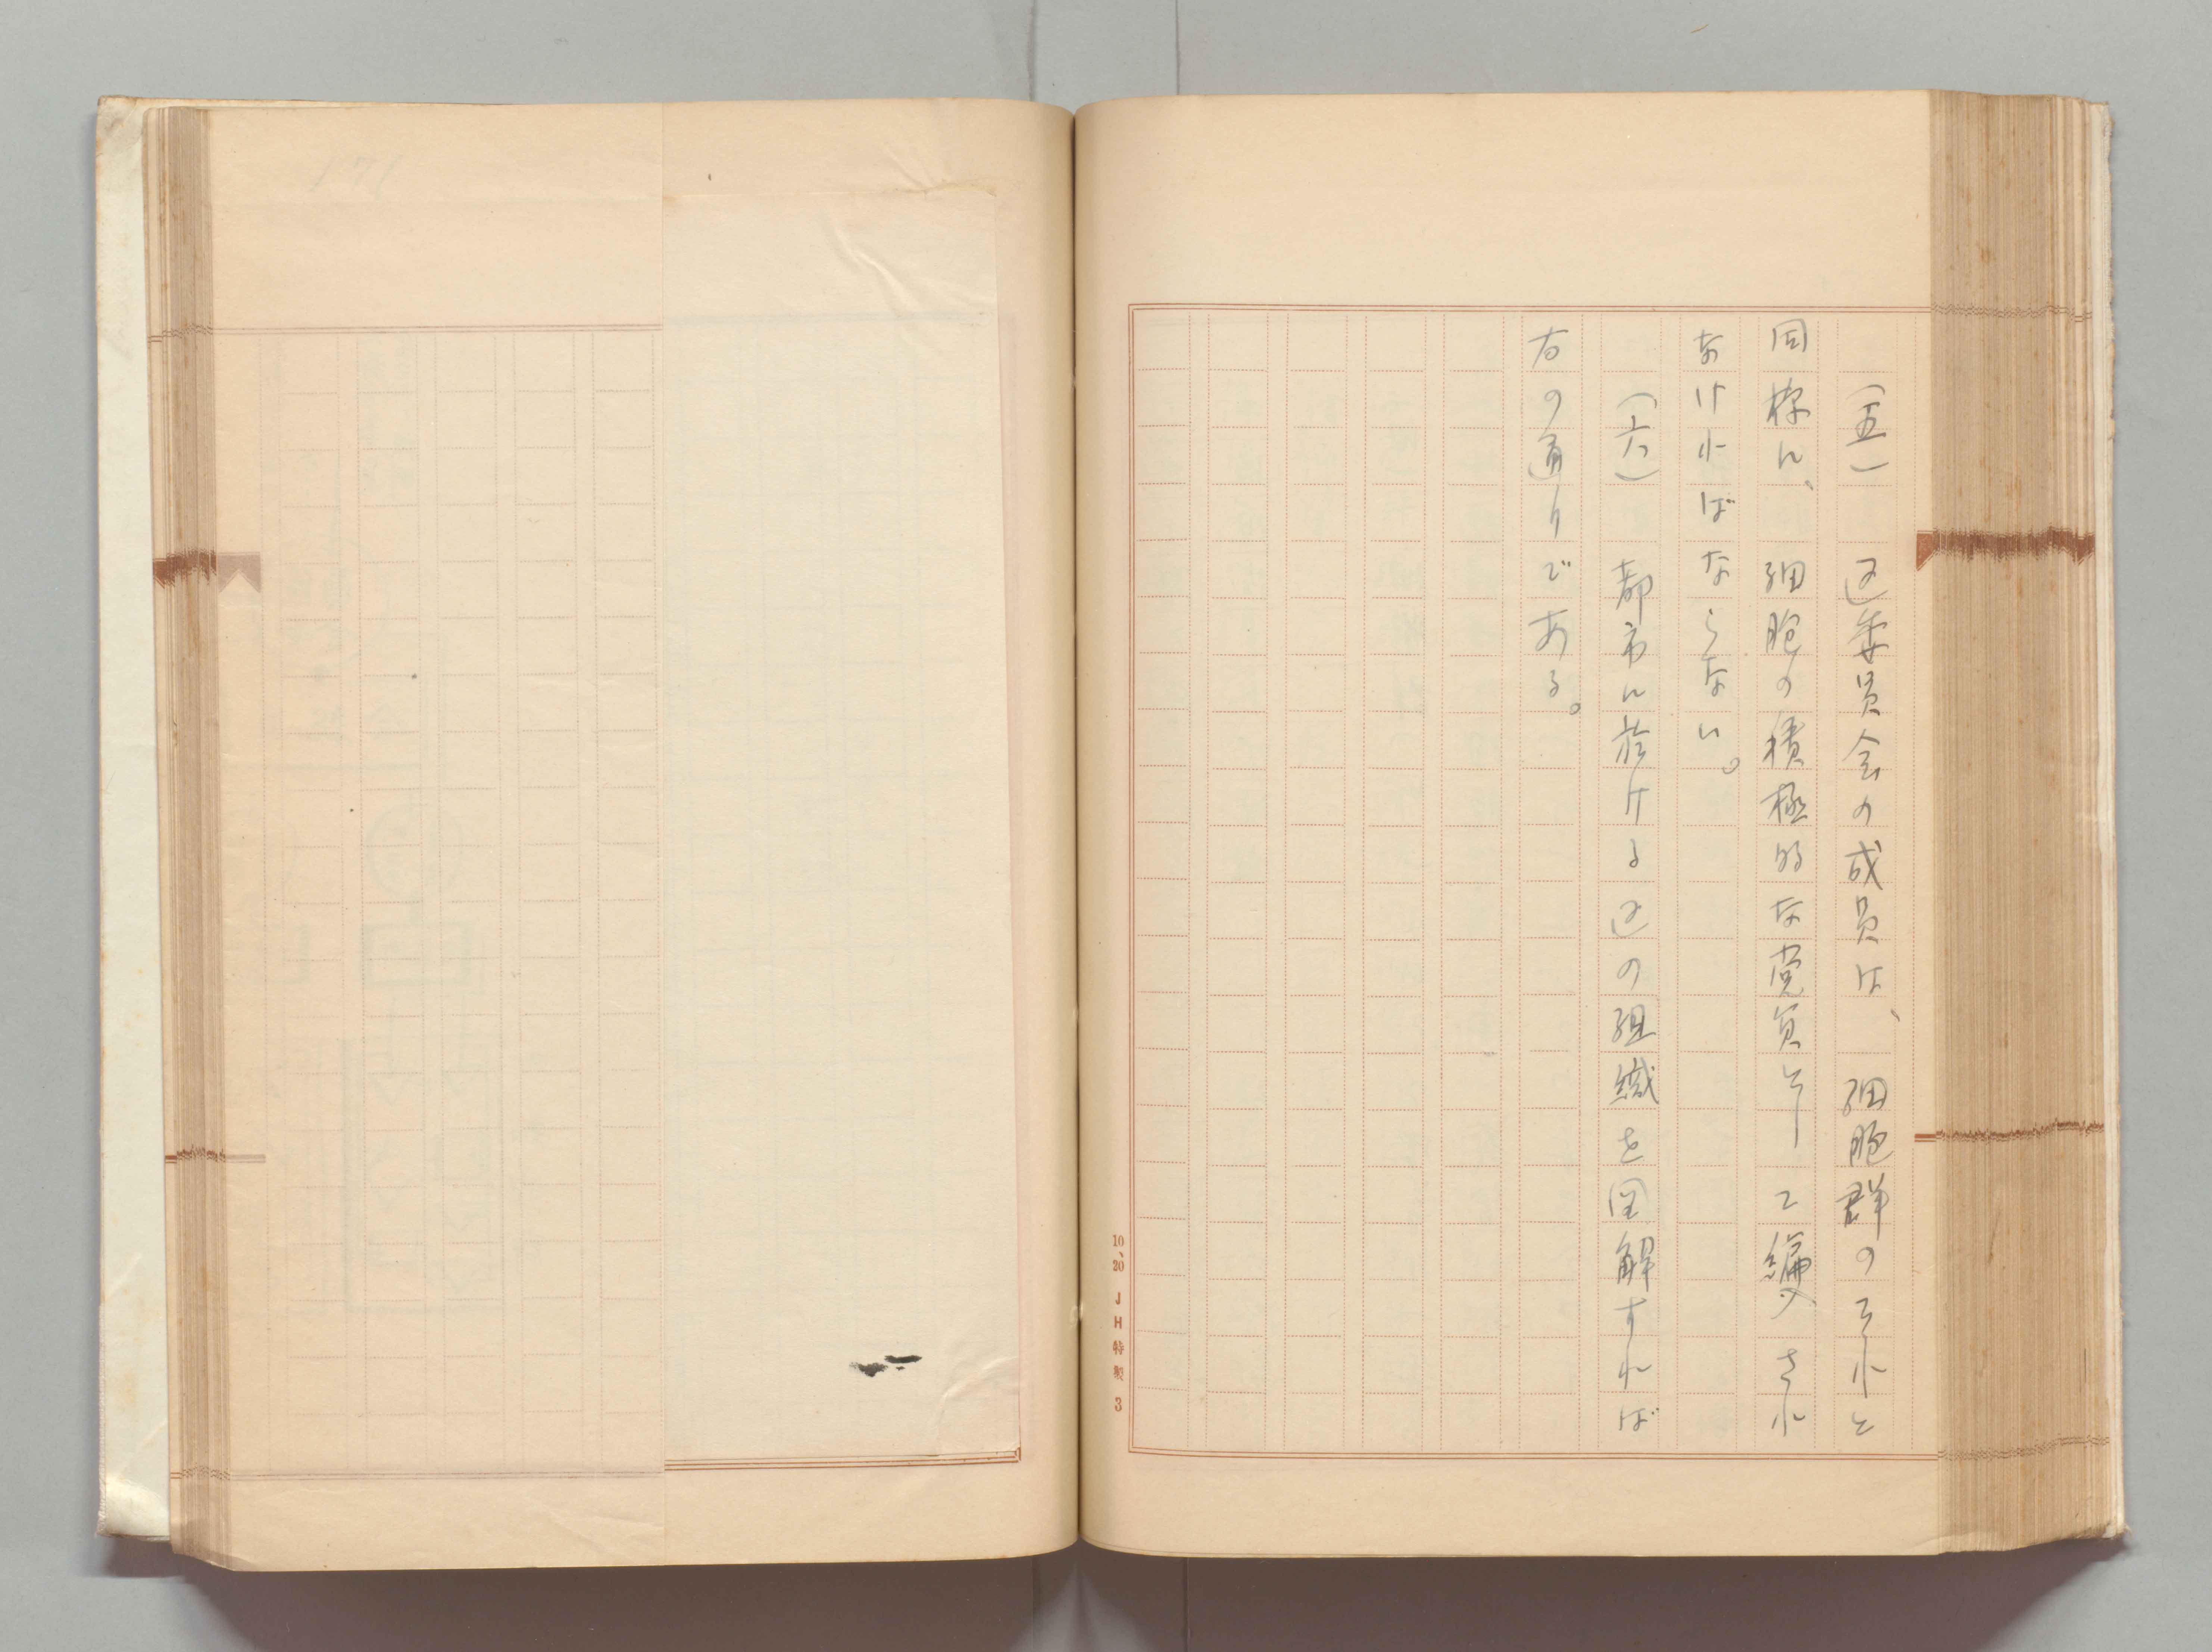 (五) 区委員会の成員は、細胞群のそれと
同様に、細胞の積極的な党員として編入され
なければならない。
(六) 都市に於ける区の組織を図解すれば
右の通りである。
10、20 JH特製 3